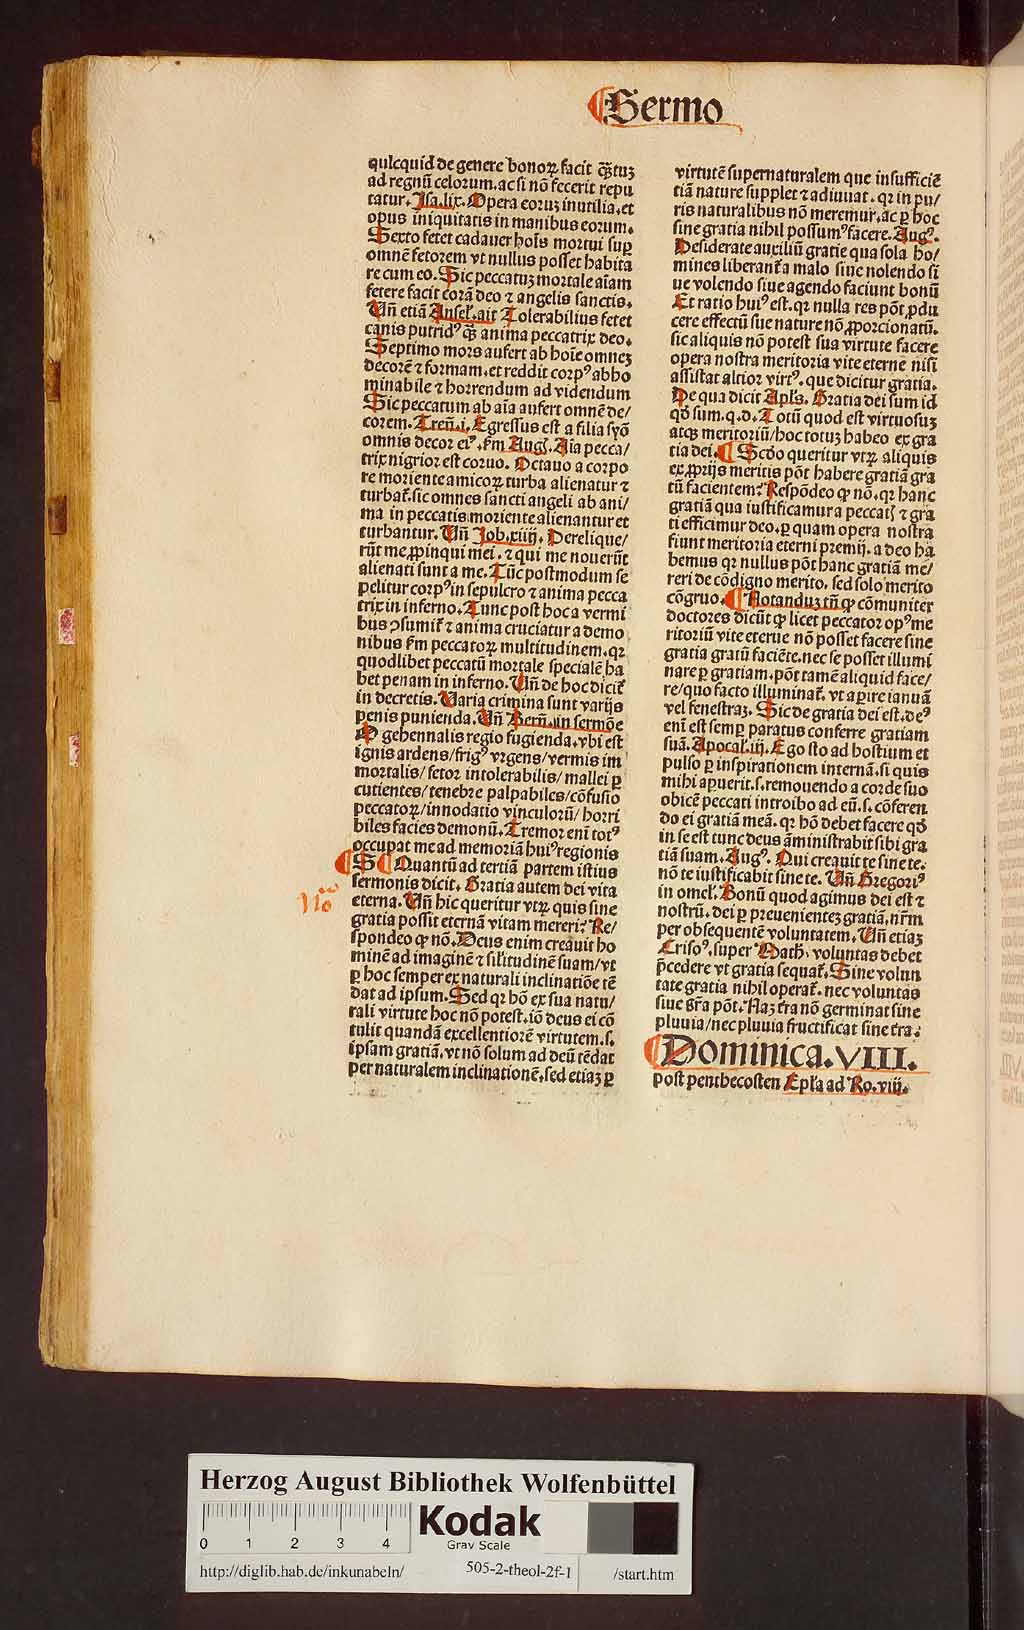 Sermo
quicquid de genere bonoꝝ facit q̄ꝫtuꝫ
ad regnū celorum. ac si nō fecerit repu
tatur. Isa. lix. Opera eoruꝫ inutilia. et
opus iniquitatis in manibus eorum.
Sexto fetet cadauer hoīs mortui suꝑ
omnē fetorem vt nullus posset habita
re cum eo. Sic peccatuꝫ mortale aīam
fetere facit corā deo ⁊ angelis sanctis.
Vn̄ etiā Anselꝉ. ait Tolerabilius fetet
canis putridꝰ q̄ꝫ anima peccatrix deo.
Septimo mors aufert ab hoīe omneꝫ
decorē ⁊ formam. et reddit corpꝰ abho
minabile ⁊ horrendum ad videndum
Sic peccatum ab aīa aufert omnē de/
corem. Tren̄. i. Egressus est a filia syō
omnis decor eiꝰ. ẜm Augꝭ. Aīa pecca/
trix nigrior est coruo. Octauo a corpo
re moriente amicoꝝ turba alienatur ⁊
turbat᷑. sic omnes sancti angeli ab ani/
ma in peccatis moriente alienantur et
turbantur. Vn̄ Job. xiiij. Dereliquę/
rūt me ꝓpinqui mei. ⁊ qui me nouerūt
alienati sunt a me. Tūc postmodum se
pelitur corpꝰ in sepulcro ⁊ anima pecca
trix in inferno. Tunc post hoc a vermi
bus ꝯsumit᷑ ⁊ anima cruciatur a demo
nibus ẜm peccatoꝝ multitudinem. qꝛ
quodlibet peccatū mortale speciale ha
bet penam in inferno. Vn̄ de hoc dicit᷑
in decretis. Varia crimina sunt varijs
penis punienda. Vn̄ Bern̄. in sermōe
O gehennalis regio fugienda. vbi est
ignis ardens/ frigꝰ vrgens/ vermis im
mortalis/ fetor intolerabilis/ mallei ꝑ
cutientes/ tenebre palpabiles/ cōfusio
peccatoꝝ/ innodatio vinculorū/ horri
biles facies demonū. Tremor enī totꝰ
occupat me ad memoriā huiꝰ regionis
S Quantū ad tertiā partem istius
sermonis dicit. Gratia autem dei vita
eterna. Vn̄ hic queritur vtꝝ quis sine
gratia possit eternā vitam mereri? Re/
spondeo ꝙ nō. Deus enim creauit ho
minē ad imaginē ⁊ siꝉitudinē suam/ vt
ꝑ hoc semper ex naturali inclinatiōe tē
dat ad ipsum. Sed qꝛ hō ex sua natu/
rali virtute hoc nō potest. iō deus ei cō
tulit quandā excellentiorē virtutem. s.
ipsam gratiā. vt nō solum ad deū tēdat
per naturalem inclinationē. sed etiaꝫ ꝑ
No
virtutē supernaturalem que insufficiē
tiā nature supplet ⁊ adiuuat. qꝛ in pu/
ris naturalibus nō meremur. ac ꝑ hoc
sine gratia nihil possumꝰ facere. Augꝰ.
Desiderate auxiliū gratie qua sola ho/
mines liberant᷑ a malo siue nolendo si
ue volendo siue agendo faciunt bonū
Et ratio huiꝰ est. qꝛ nulla res pōt ꝓdu
cere effectū sue nature nō ꝓporcionatū.
sic aliquis nō potest sua virtute facere
opera nostra meritoria vite eterne nisi
assistat altior virtꝰ. que dicitur gratia.
De qua dicit Apꝉs. Gratia dei sum id
qđ sum. q. d. Totū quod est virtuosuꝫ
atqꝫ meritoriū/ hoc totuꝫ habeo ex gra
tia dei. Scđo queritur vtꝝ aliquis
ex ꝓprijs meritis pōt habere gratiā gra
tū facientem? Respōdeo ꝙ nō. qꝛ hanc
gratiā qua iustificamur a peccatꝭ ⁊ gra
ti efficimur deo. ꝑ quam opera nostra
fiunt meritoria eterni premij. a deo ha
bemus qꝛ nullus pōt hanc gratiā me/
reri de cōdigno merito. sed solo merito
cōgruo. Notanduꝫ tn̄ ꝙ cōmuniter
doctores dicūt ꝙ licet peccator opꝰ me
ritoriū vite eterne nō posset facere sine
gratia gratū faciēte. nec se posset illumi
nare ꝑ gratiam. pōt tamē aliquid face/
re/ quo facto illuminat᷑. vt aꝑire ianuā
vel fenestraꝫ. Sic de gratia dei est. deꝰ
enī est semꝑ paratus conferre gratiam
suā. Apocaꝉ. iij. Ego sto ad hostium et
pulso ꝑ inspirationem internā. si quis
mihi aperuerit. s. remouendo a corde suo
obicē peccati introibo ad eū. s. cōferen
do ei gratiā meā. qꝛ hō debet facere qđ
in se est tunc deus āministrabit sibi gra
tiā suam. Augꝰ. Qui creauit te sine te.
nō te iustificabit sine te. Vn̄ Gregoriꝰ
in omeꝉ. Bonū quod agimus dei est ⁊
nostrū. dei ꝑ preuenienteꝫ gratiā. nr̄m
per obsequentē voluntatem. Vn̄ etiaꝫ
Crisoꝰ. super Math. voluntas debet
p̄cedere vt gratia sequat᷑. Sine volun
tate gratia nihil operat᷑. nec voluntas
siue gr̄a pōt. Naꝫ tr̄a nō germinat sine
pluuia/ nec pluuia fructificat sine tr̄a.
Dominica. VIII.
post penthecosten Epꝉa ad Ro. viij.
Herzog August Bibliothek Wolfenbüttel
0 1 2 3 4
Kodak
Gray Scale
http://diglib.hab.de/inkunabeln/ 505-2-theol-2f-1 /start.htm